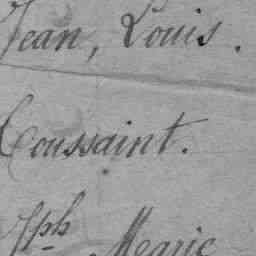 Jean, Louis.
Toussaint.
Jph Marie